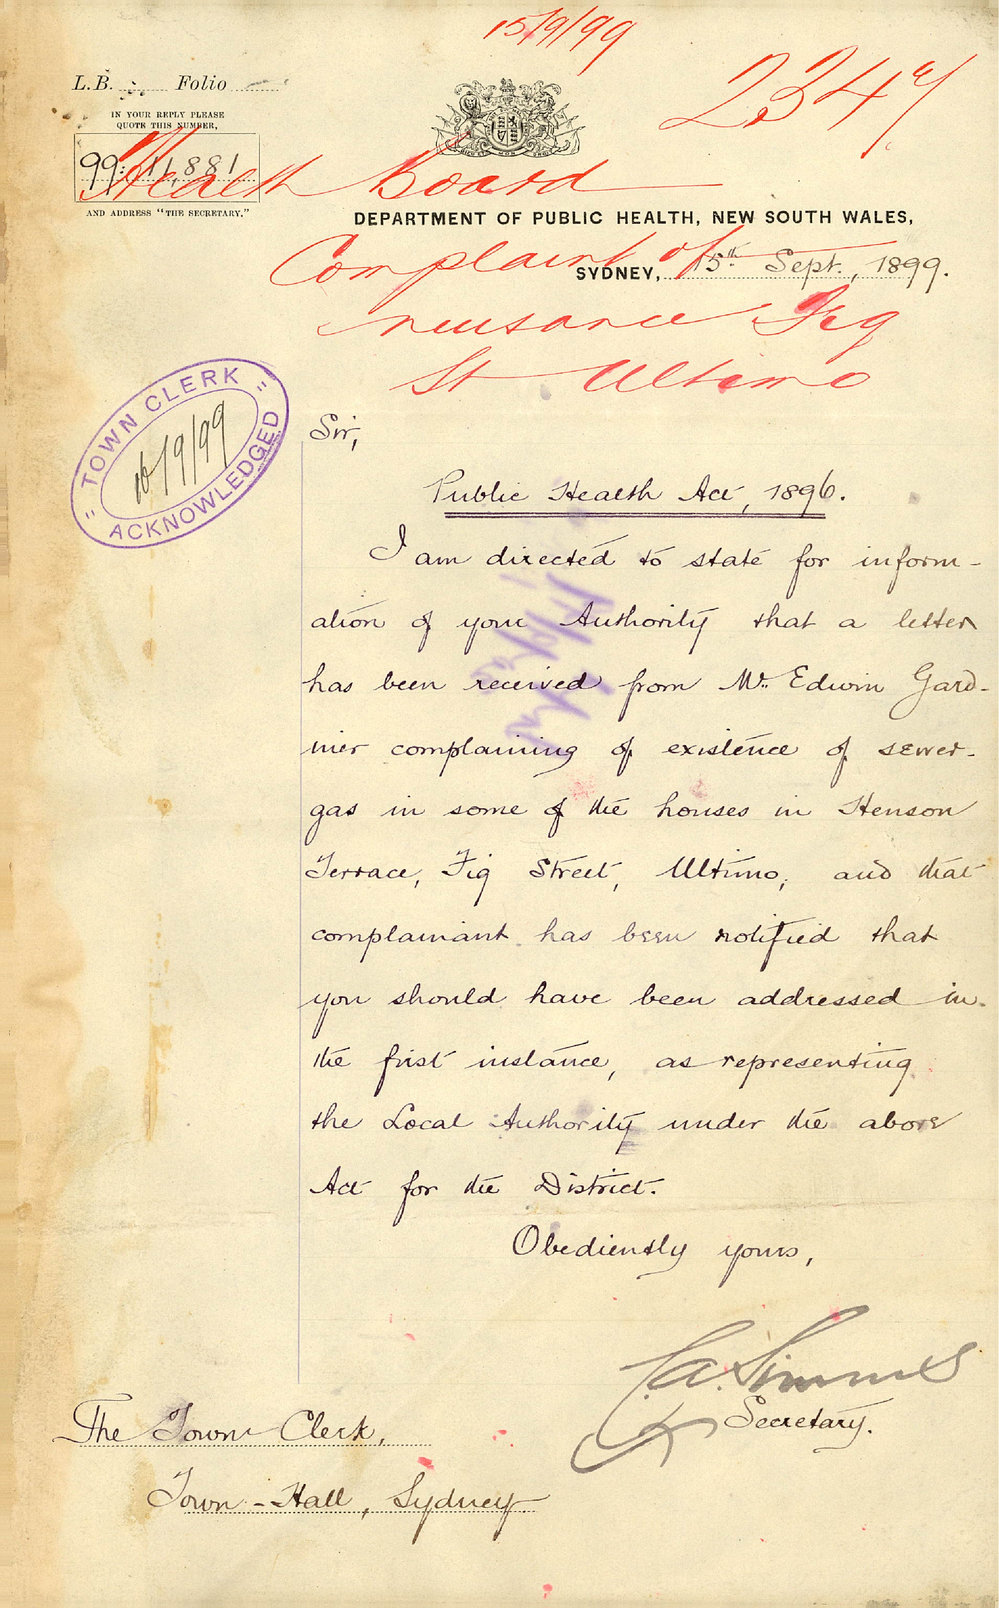 15/9/99
2347
L.B. Folio
IN YOUR REPLY PLEASE
QUOTE THIS NUMBER,
99: 11,881
AND ADDRESS "THE SECRETARY."
Health Board
DEPARTMENT OF PUBLIC HEALTH, NEW SOUTH WALES,
Complaint of
SYDNEY, 15th Sept., 1899.
neusance Fig
St Ultimo
"TOWN CLERK"
16/9/99
ACKNOWLEDGED
Sir,
Public Health Act, 1896.
I am directed to state for inform-
ation of your Authority that a letter
has been received from Mr. Edwin Gard-
iner complaining of existence of sewer-
gas in some of the houses in Henson
Terrace, Fig Street, Ultimo; and that
complainant has been notified that
you should have been addressed in
the first instance, as representing
the Local Authority under the above
Act for the District.
Obediently yours,
Secretary.
The Town Clerk,
Town-Hall, Sydney